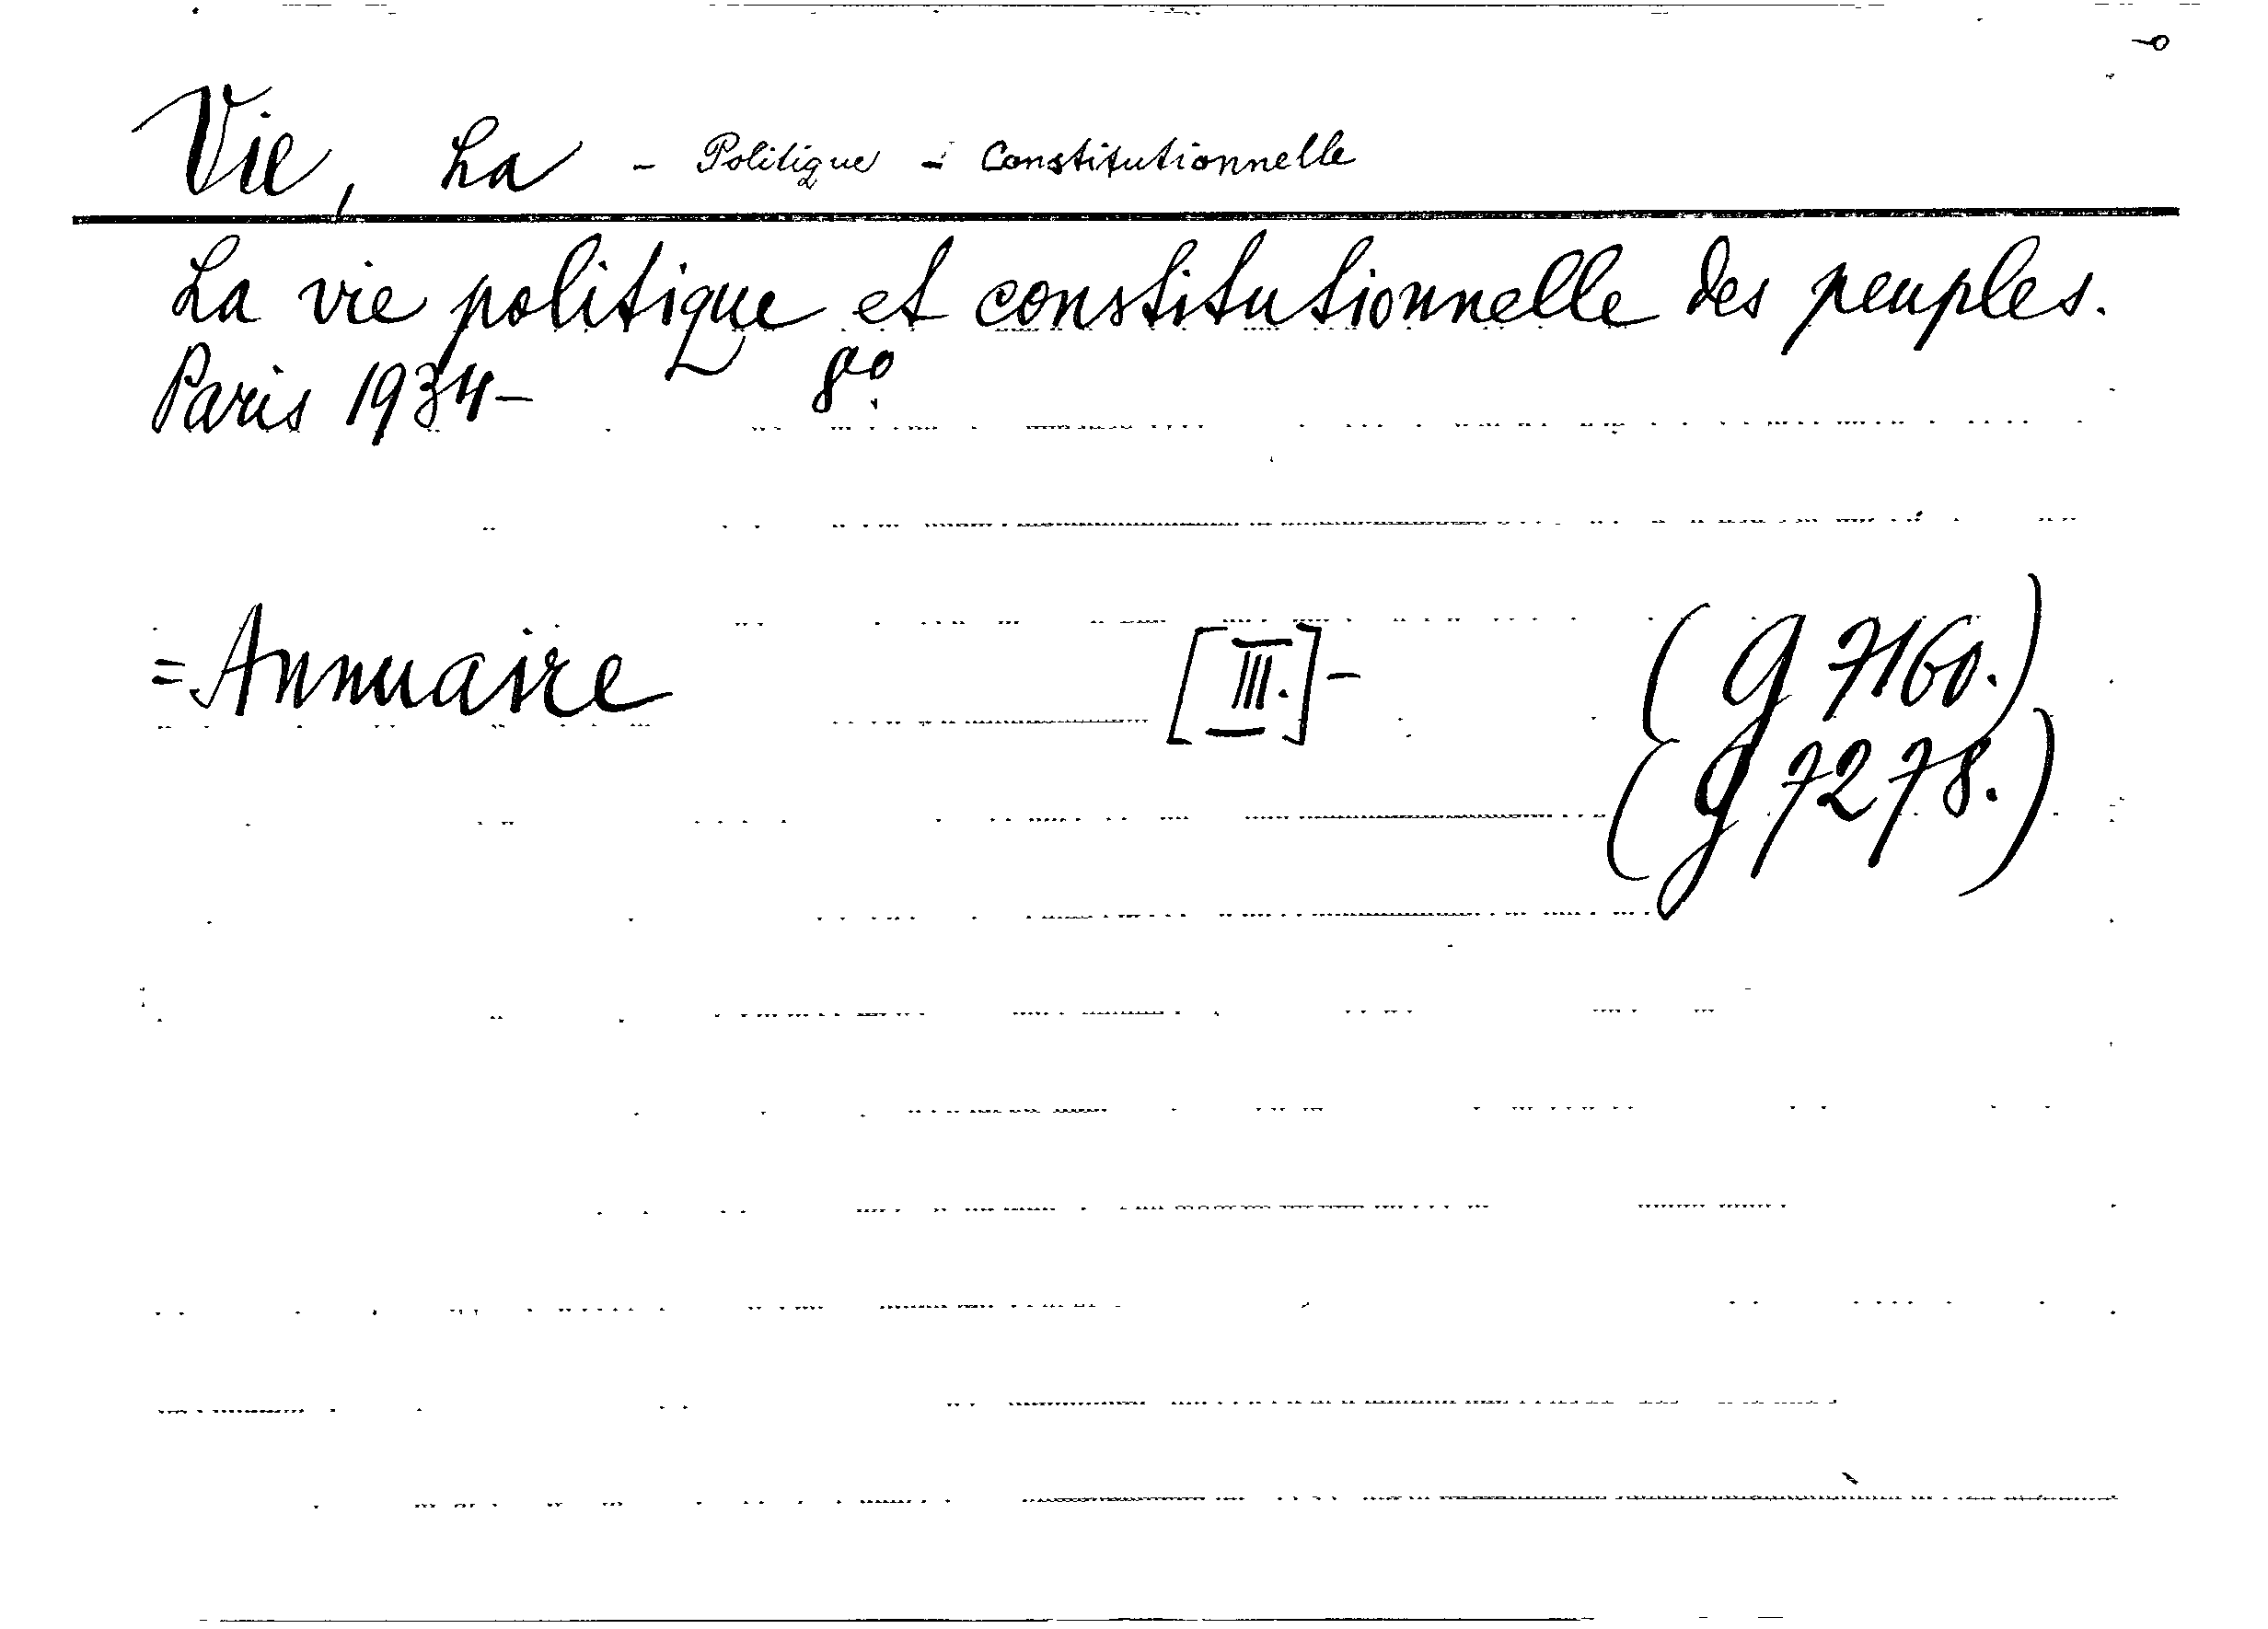 Vie, La - Politique - Constitutionnelle
La vie politique et constitutionnelle des peuples.
Paris 1934- 8o.
= Annuaire [III.]- (g 7160.)
(g 7278.)